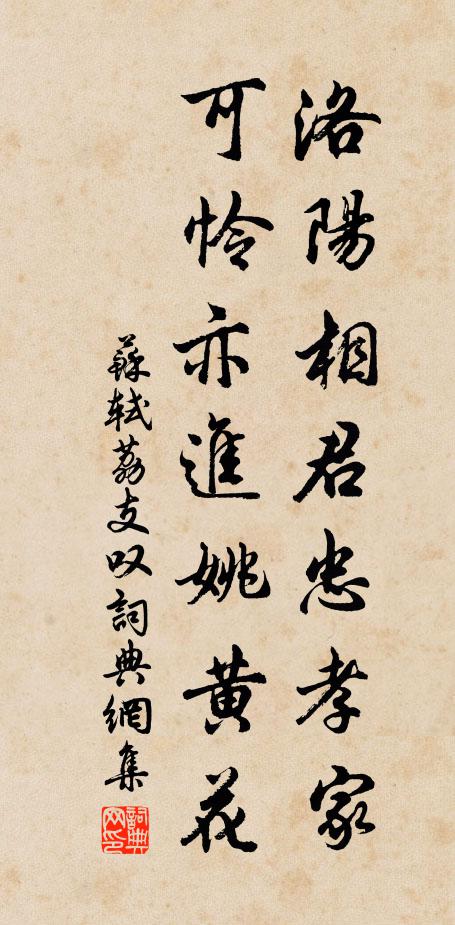 洛陽相君忠孝家
可憐亦進姚黄花
蘇軾荔支叹詞典網集
詞典網印